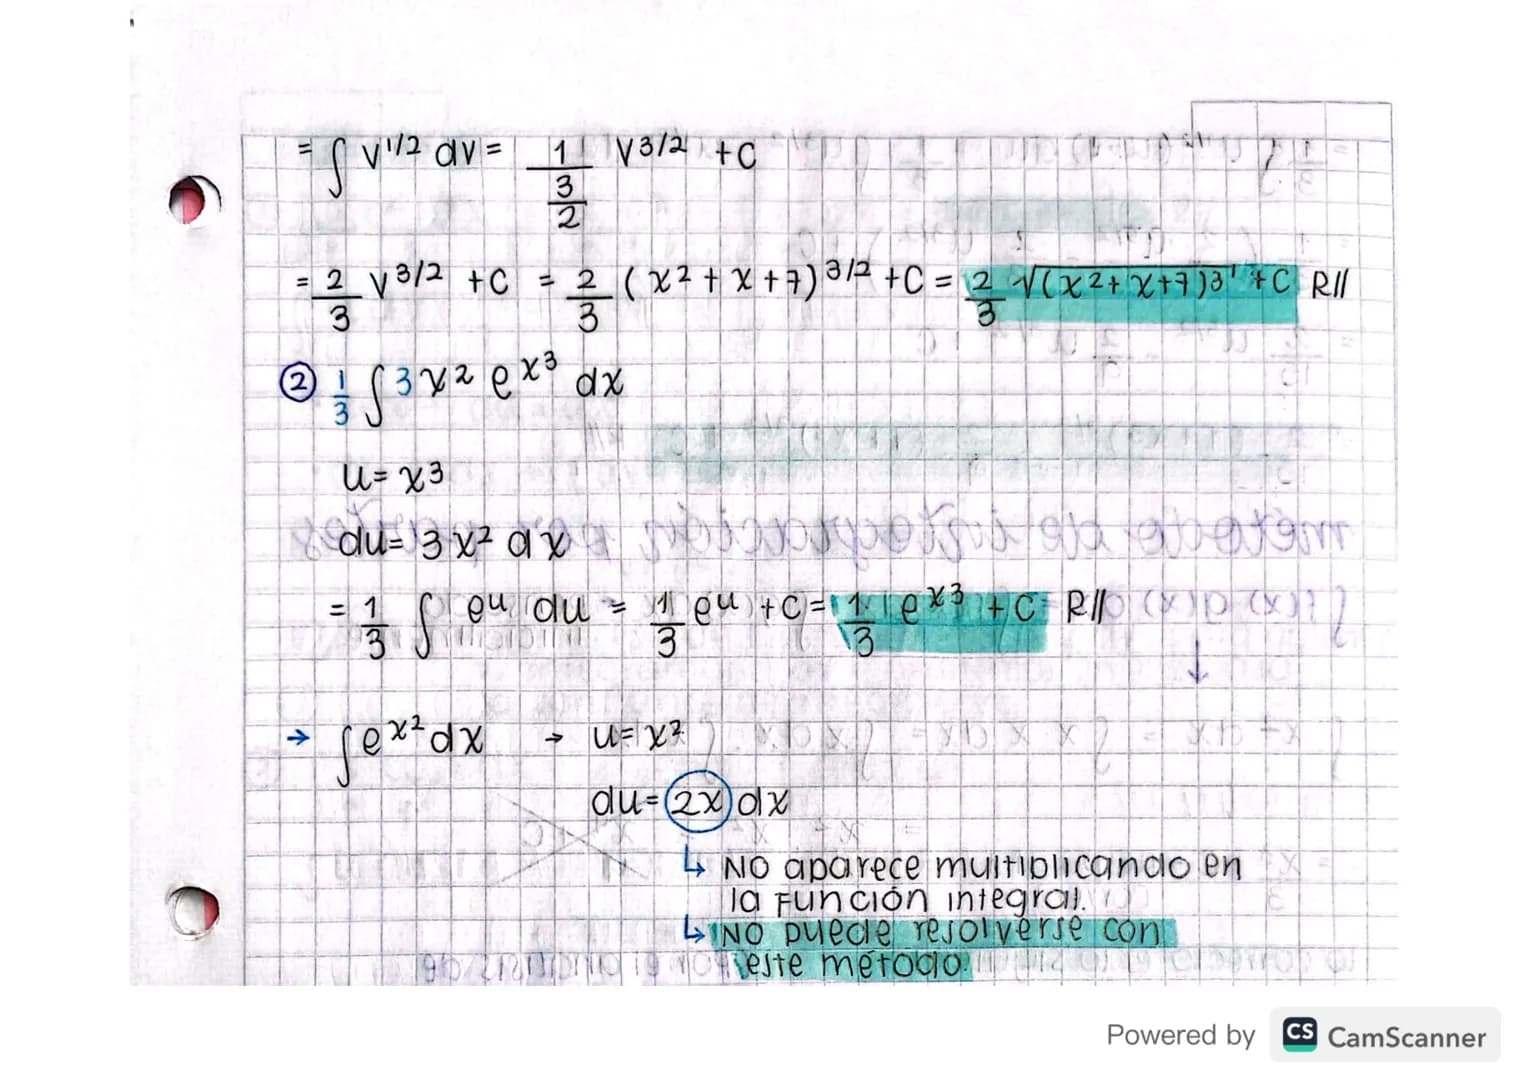 = ∫ v^1/2 dv = 1/(3/2) v^3/2 + C
= 2/3 v^3/2 + C = 2/3 (x² + x + 7)^3/2 + C = 2/3 √(x² + x + 7)³ + C R//
② 1/3 ∫ 3x² e^x³ dx
u = x³
du = 3x² dx
= 1/3 ∫ e^u du = 1/3 e^u + C = 1/3 e^x³ + C R//
→ ∫ e^x² dx → u = x²
du = 2x dx
↳ No aparece multiplicando en
la función integral.
↳ No puede resolverse con
este método.
Powered by CS CamScanner